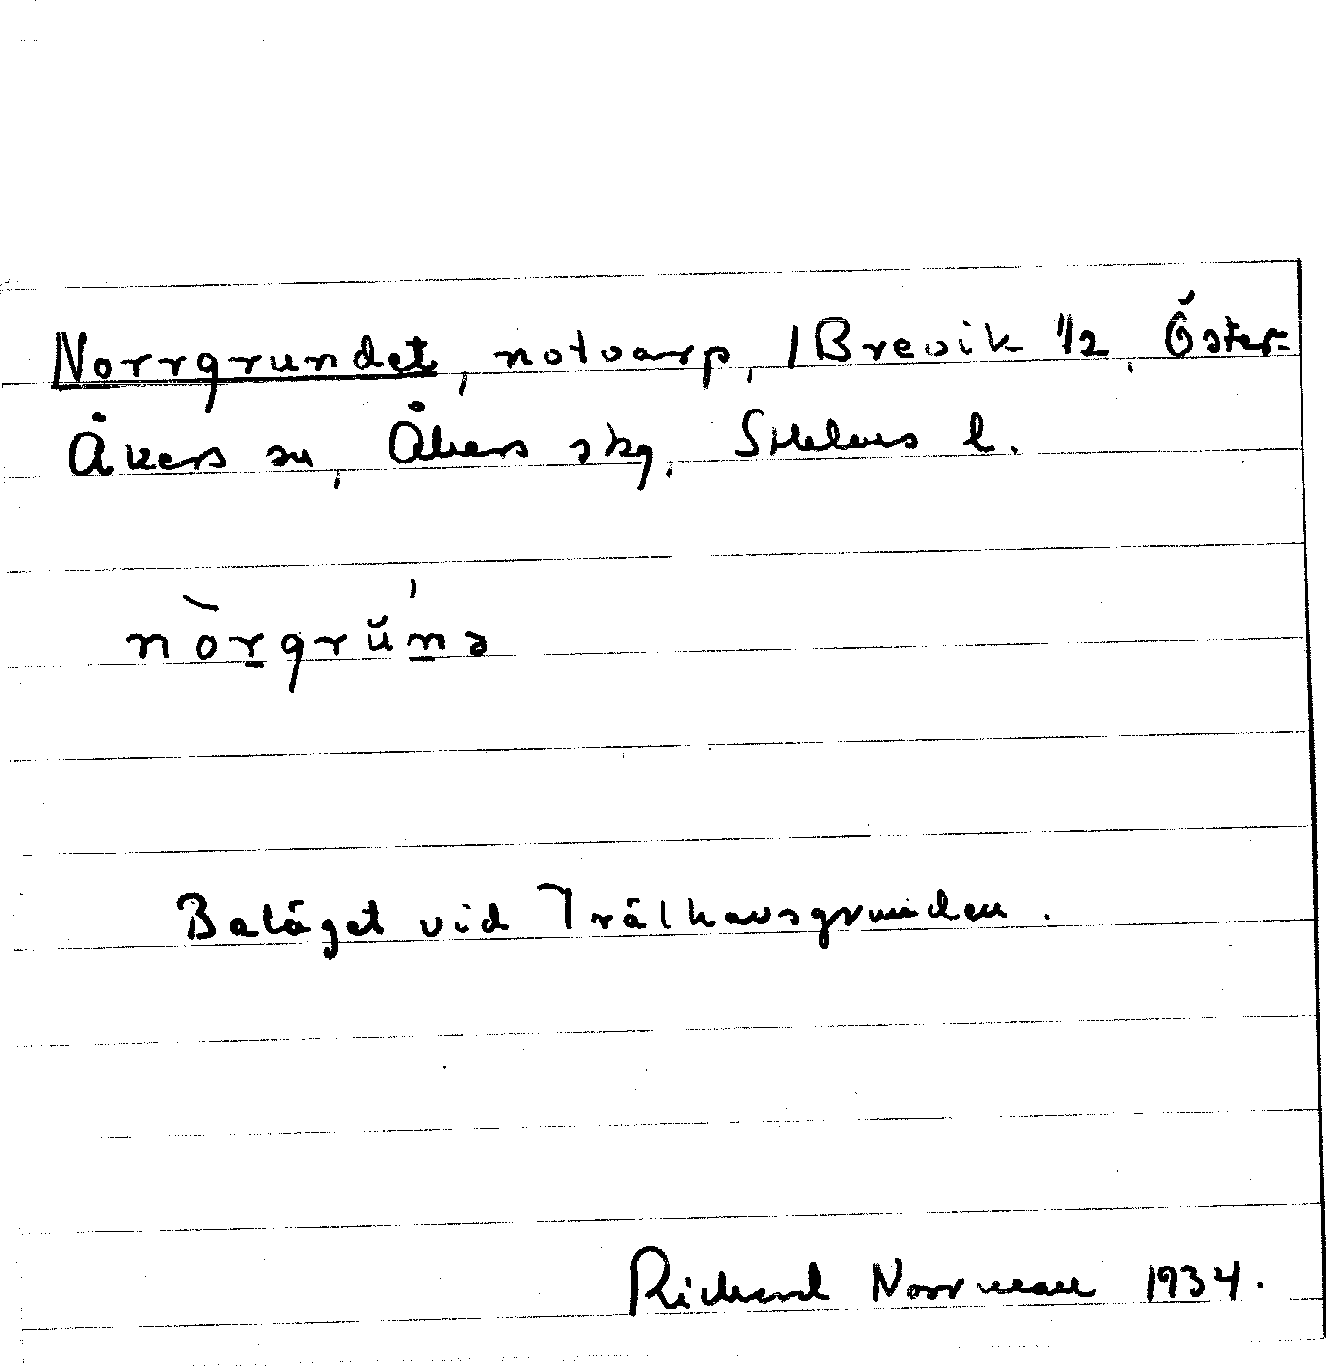 Norrgrundet, notvarp, / Brevik 1/2, Öster-
Åkers sn, Åkers skg, Sthlms l.
nòrgrŭ́nə
Beläget vid Trälhavsgrunden.
Richard Norrman 1934.